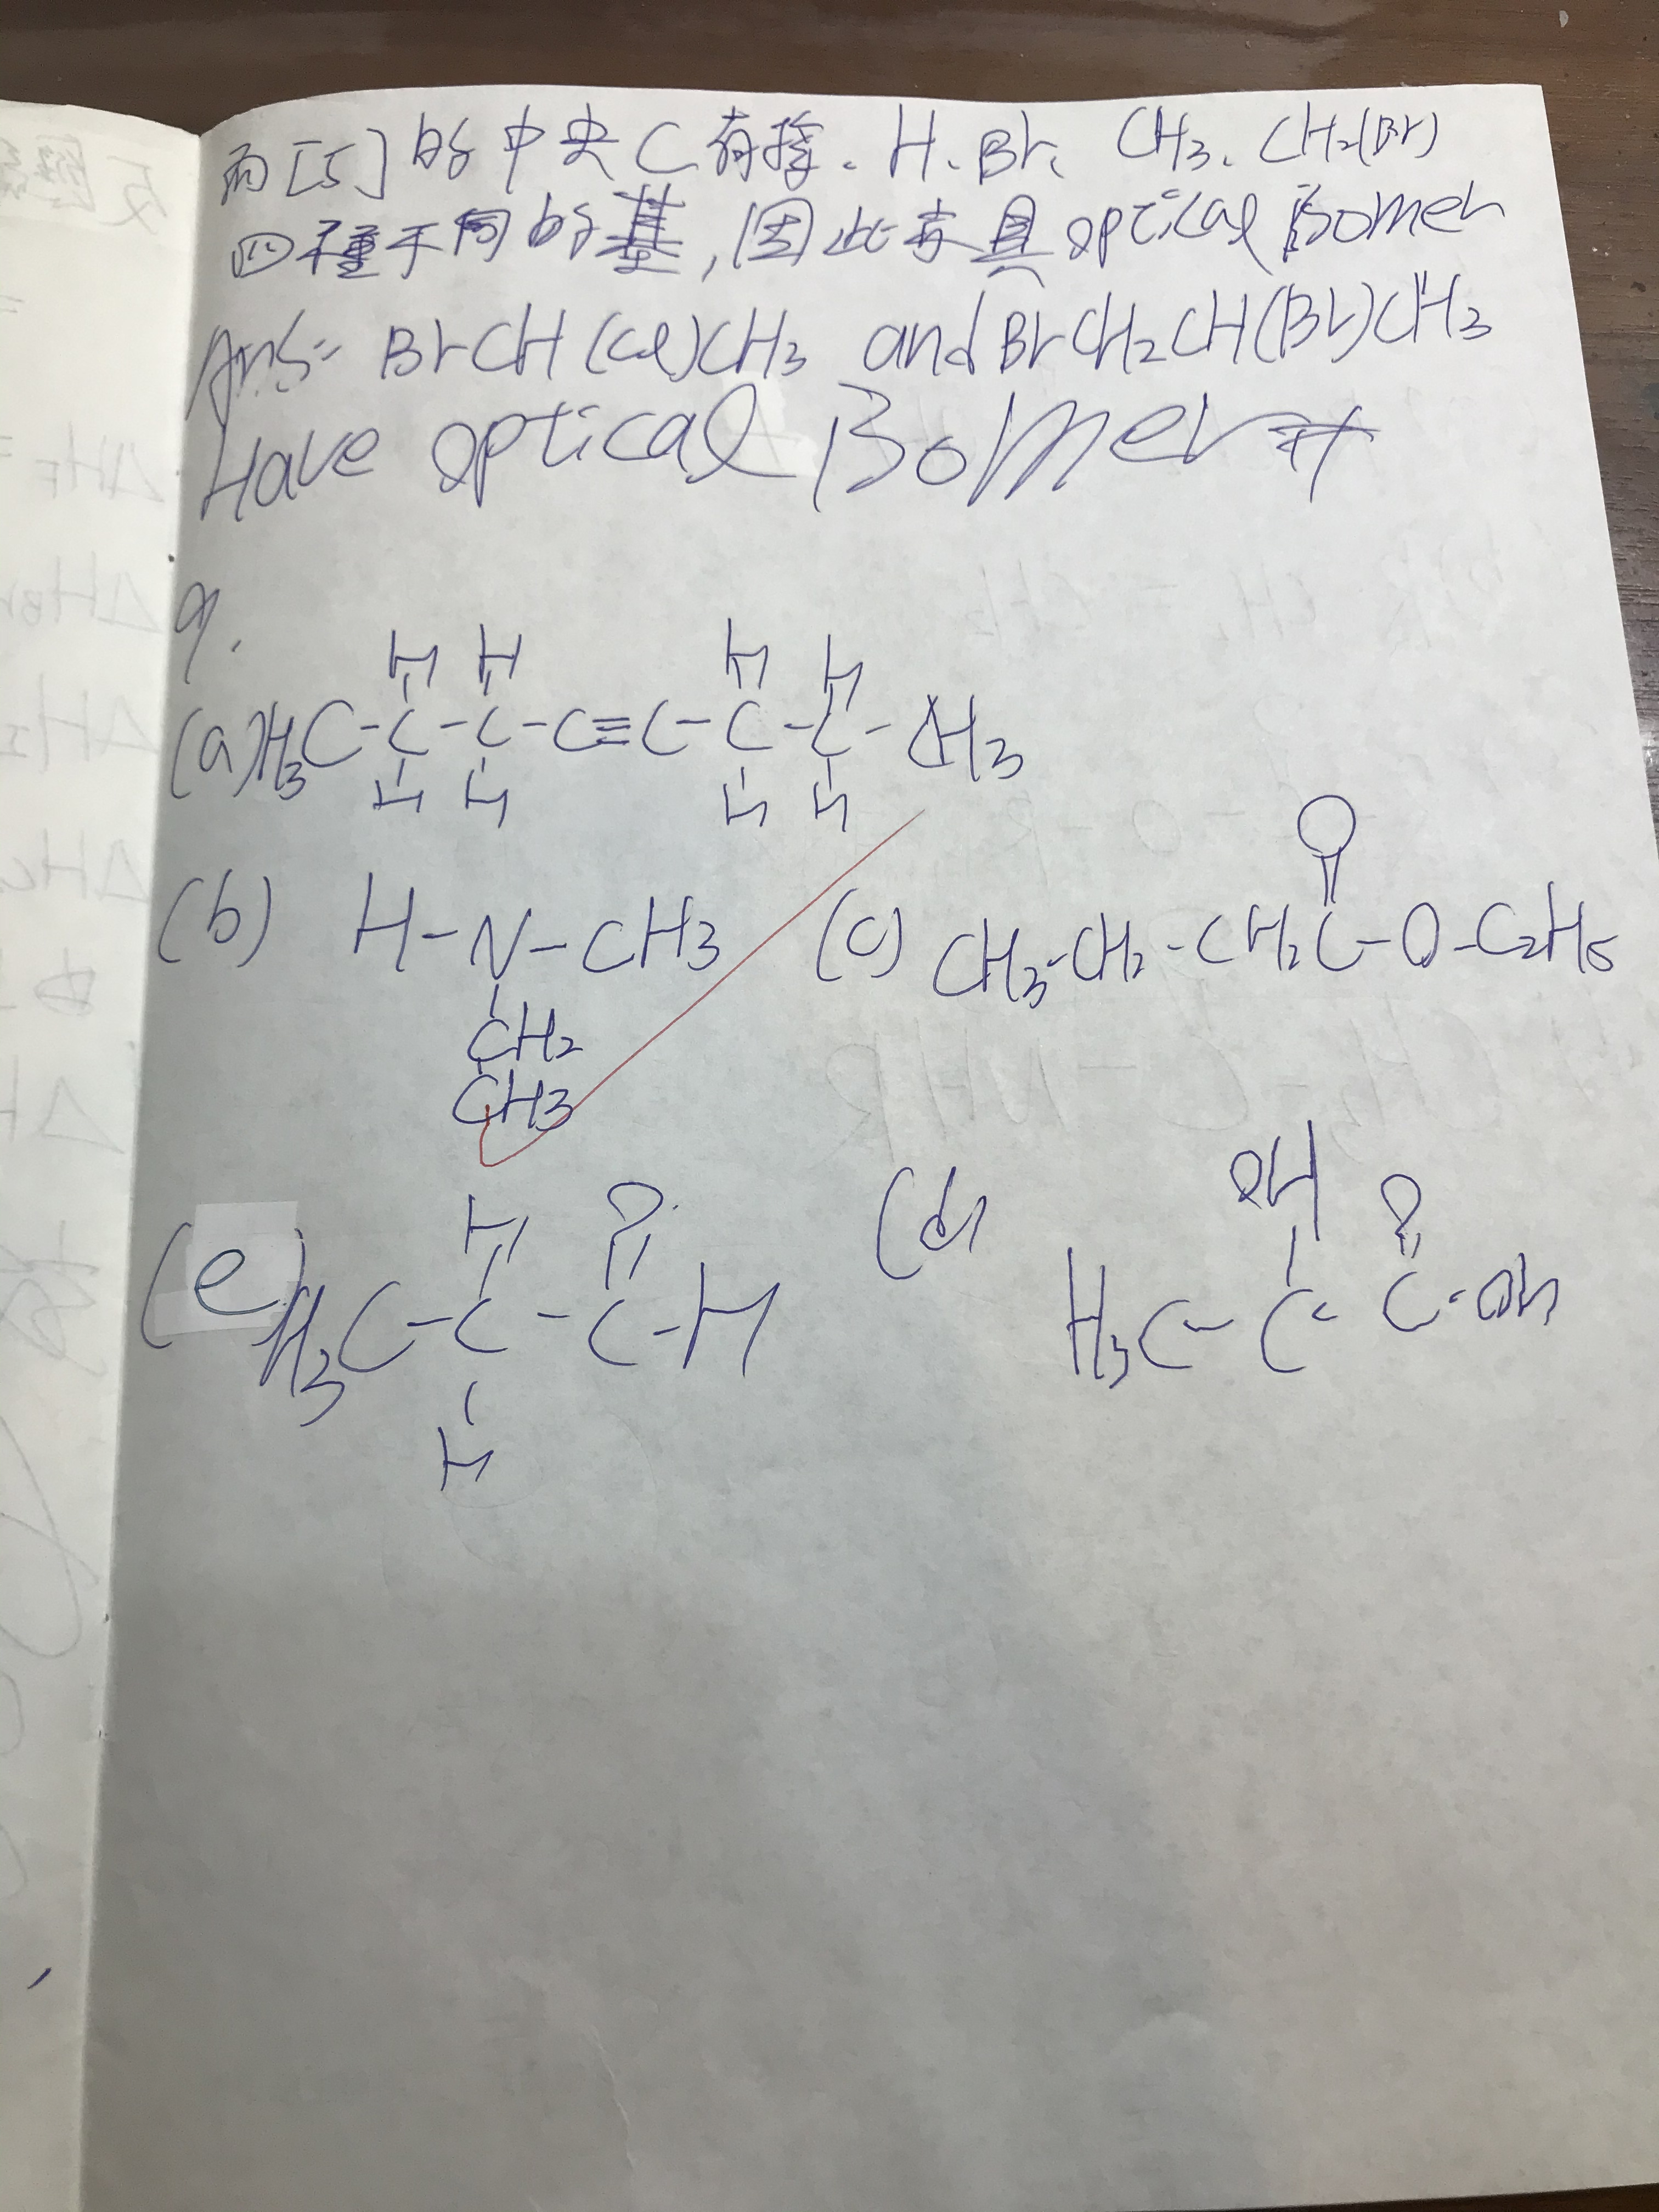 而[5]的中央C有接. H. Br、CH3、CH2(Br)
四種不同的基,因此亦具optical isomer
Ans= BrCH(Cl)CH3 and BrCH2CH(Br)CH3
Have optical isomer#
9.
H H H H
(a) H3C-C-C-C≡C-C-C-CH3
H H H H
O
(b) H-N-CH3 (c) CH3-CH2-CH2C-O-C2H5
CH2
CH3
H O (d) OH O
(e) H3C-C-C-H H3C-C-C-OH
H